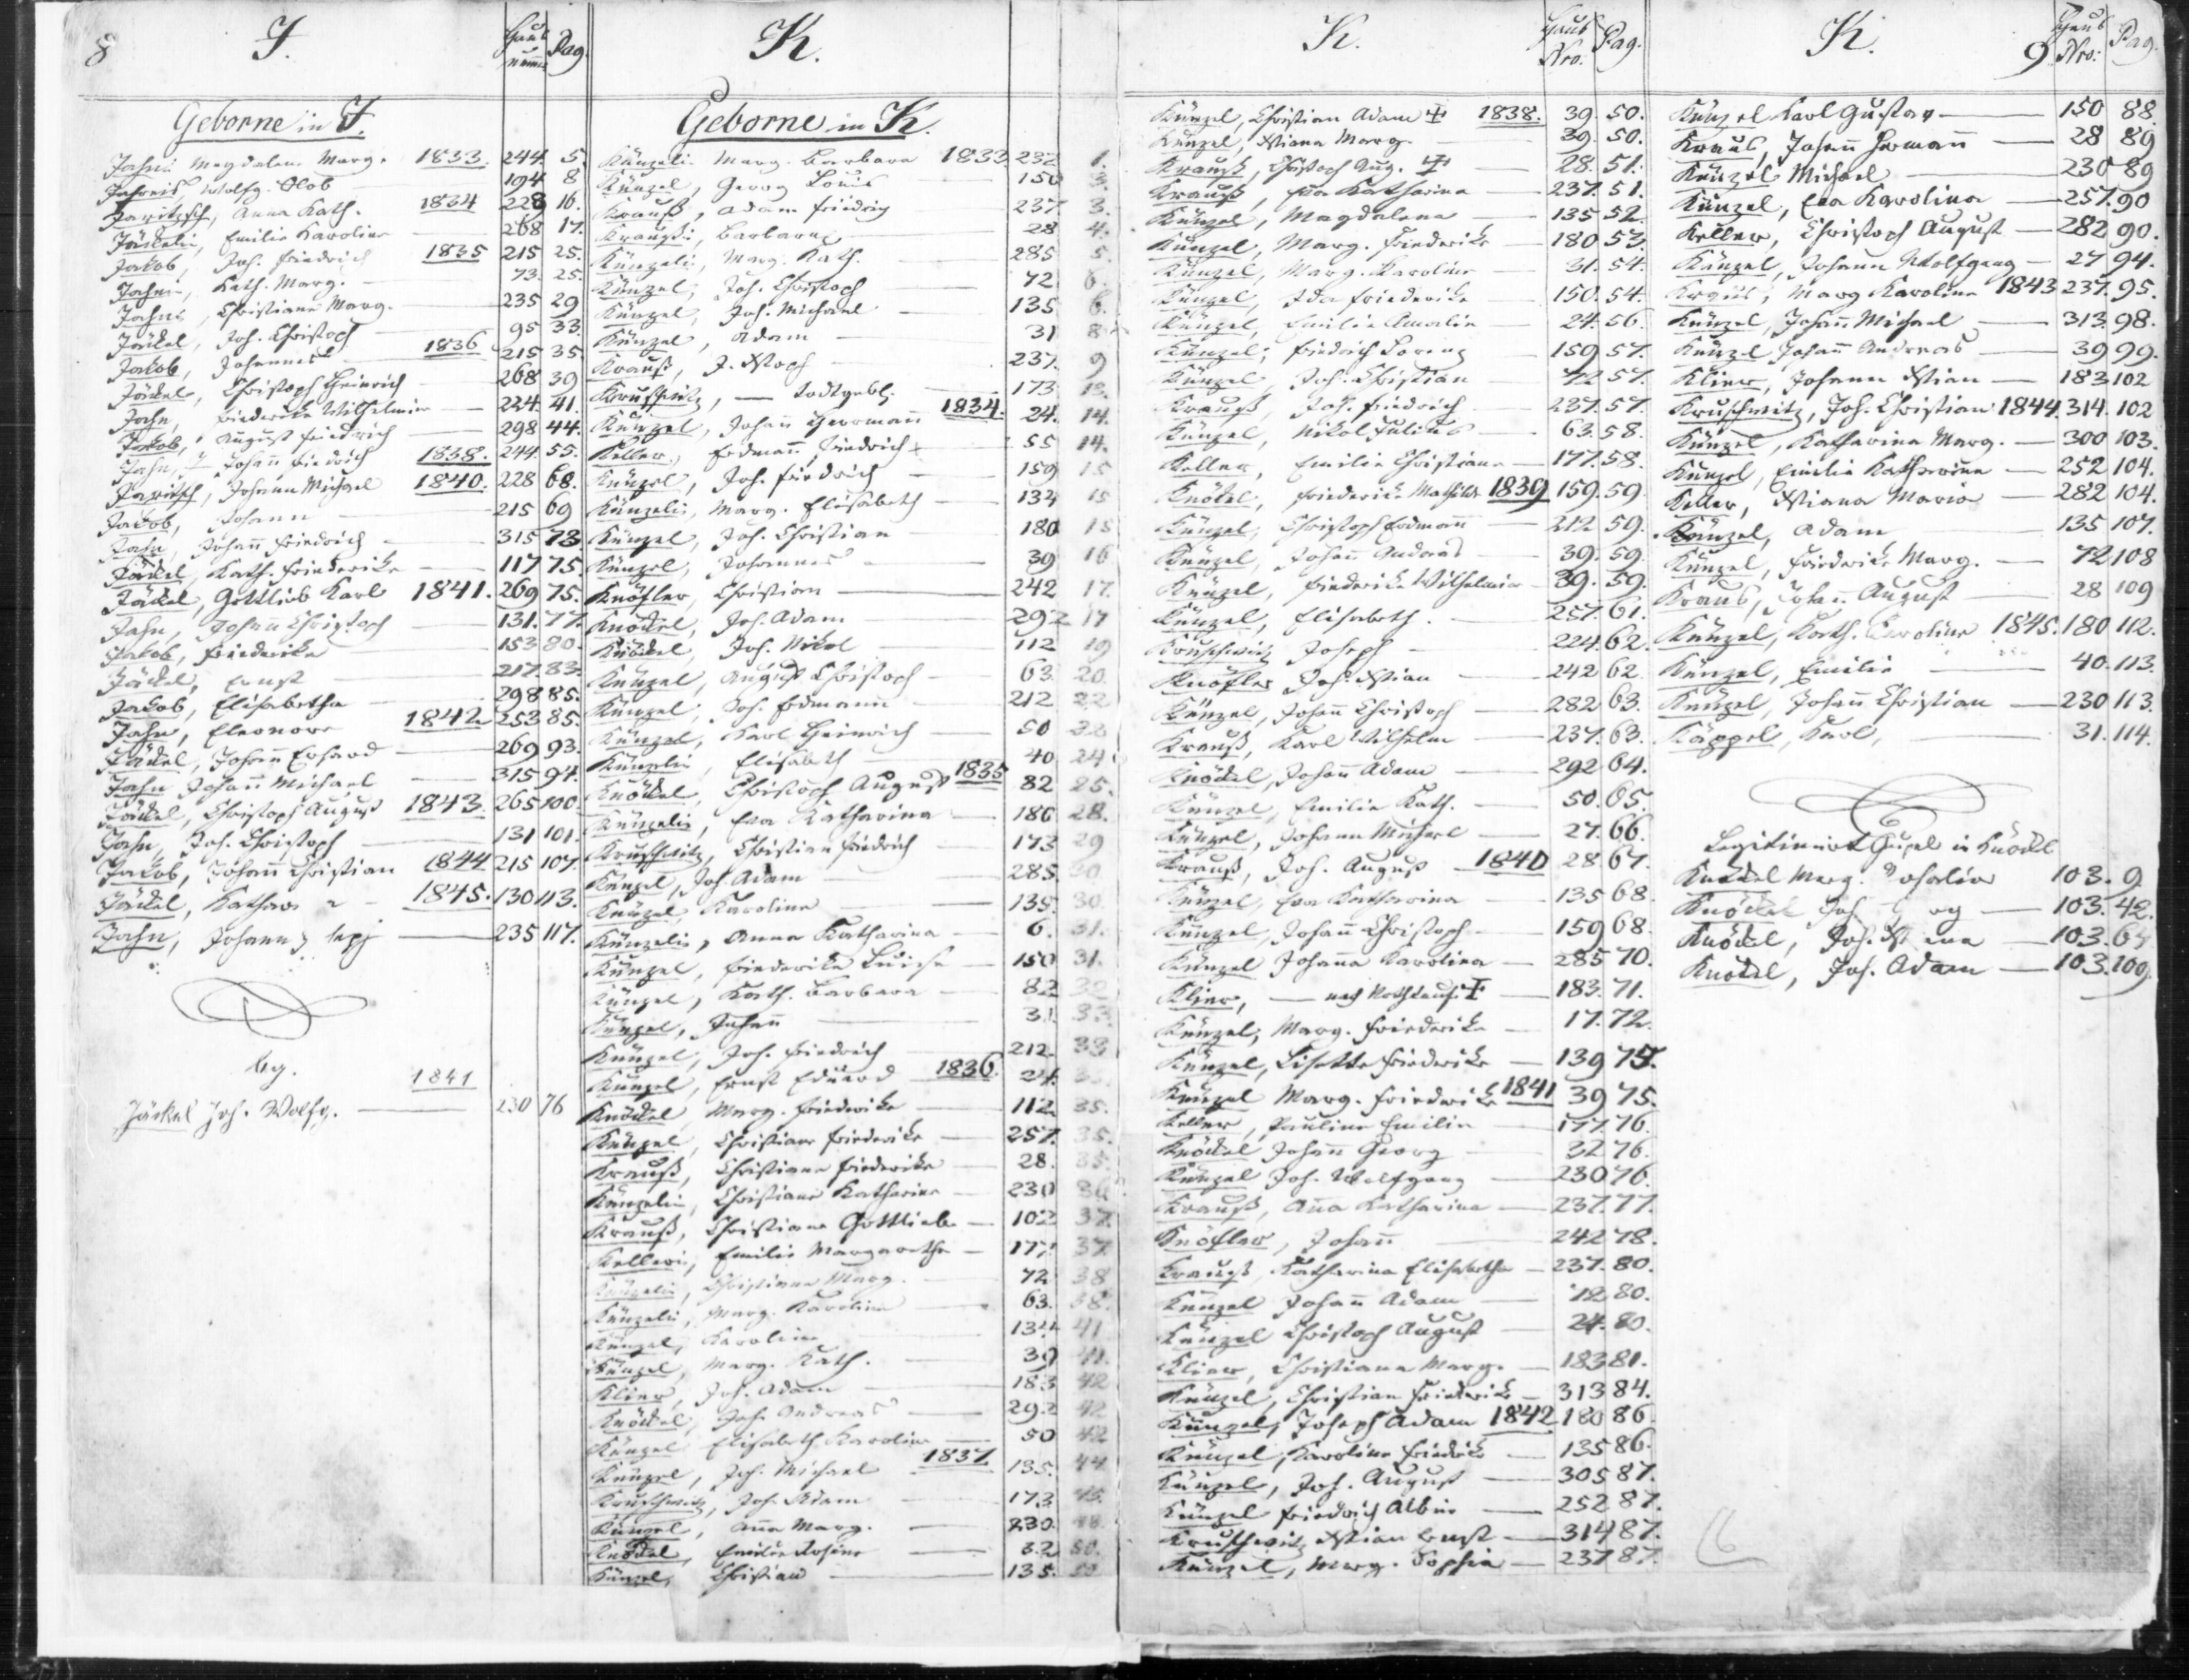 8
J.
Haus numer
Pag.
Geborne in J.
Jahni Magdalena Marg. 1833. 244 5.
Jahreis, Wolfg. 194 8
Jaritzsch, Anna Kath. 1834 228 16.
Jäckeli, Emilie Karoline 268 17.
Jakob, Joh. Friedrich 1835 215 25.
Jahni, Kath. Marg. 73. 25.
Jahni, Christiane Marg. 235 29
Jäckel, Joh. Christoph 95 33
Jakob, Johannes 1836 215 35
Jäckel, Christoph Heinrich 268 39
Jahn, Friederike Wilhelmine 224. 41.
Jakob, August Friedrich 298 44.
Jahn, Johann Friedrich 1838. 244 55.
Jaritsch, Johann Michael 1840. 228 68.
Jakob, Johann 215 69
Jahn, Johann Friedrich 315 73
Jäckel, Kath. Friederike 117 75.
Jäckel, Gottlieb Karl 1841. 269 75.
Jahn, Johann Christoph 131. 77.
Jakob, Friederike 153 80.
Jäckel, Ernst 217. 83.
Jakob, Elisabetha 298 85.
Jahn, Eleonore 1842 253 85
Jäckel, Johann Erhard 269 93.
Jahn Johann Michael 315 94.
Jäckel, Christoph August 1843. 265 100.
Jahn, Joh. Christoph 131 101.
Jakob, Johann Christian 1844 215 107.
Jäckel, 1845. 130 113.
Jahn, Johann 235 117.
leg.
1841
Jäckel Joh. Wolfg. 230 76
K.
Geborne in K.
Künzeli Marg. Barbara 1833 232 1.
Künzel, Georg Louis 150 3.
Krauß, Adam Friedrich 237. 3.
Kraußi, Barbara 28 4.
Künzeli, Marg. Kath. 285 5.
Künzel, Joh. Christoph 72 6.
Künzel, Joh. Michael 135 6.
Künzel, Adam 31 8
Krauß, J. Xstoph 237. 9
Kruschwitz, — todtgeb. 173 13.
Künzel, Johann Herrmann 1834. 24. 14.
Keller, Erdmann Friedrich 55 14.
Künzel, Joh. Friedrich 159 15
Künzeli, Marg. Elisabeth 134 15
Künzel, Joh. Christian 180 15
Künzel, Johannes 39 16
Knöfler, Christian 242 17.
Knöckel, Joh. Adam 292 17
Knöckel, Joh. Nikol 112 19
Künzel, August Christoph 63 20.
Künzel, Joh. Erdmann 212 22
Künzel, Karl Heinrich 50 22
Künzeli, Elisabeth 40 24
Knöckel, Christoph August 1835 82 25.
Künzeli, Eva Katharina 186 28.
Kruschwitz, Christian Friedrich 173 29
Künzel, Joh. Adam 285. 30
Künzel, Karoline 135. 30.
Künzeli, Anna Katharina 6. 31.
Künzel, Friederike Luise 150 31.
Künzel, Kath. Barbara 82 32
Künzel, Johann 31. 33.
Künzel, Joh. Friedrich 212. 33
Künzel, Ernst Eduard 1836. 24.
Knöckel, Marg. Friederike 112 35.
Künzel, Christiane Friederike 257. 35.
Krauß, Christiane Friederike 28. 35.
Künzeli, Christiane Katharine 230 36
Krauß, Christiana Gottlieb 102 37.
Kelleri, Emilie Margaretha 177. 37.
Künzeli, Christiana Marg. 72 38
Künzeli, Marg. Karoline 63. 38.
Künzel, Karoline 134 41
Künzel, Marg. Kath. 39 41.
Klier, Joh. Adam 183 42
Knöckel, Joh. Andreas 292 42
Künzel Elisabeth Karoline 50 42
Künzel, Joh. Michael 1837 135. 44
Kruschwitz, Joh. Adam 173 45.
Künzel, Anna Marg. 230.
Knöckel, Emilie Rosine 32 50.
Künzel, Christian 135.
K.
Haus Nro.
Pag.
Künzel, Christian Adam 1838. 39. 50.
Künzel, Xtiana Marg. 39. 50.
Krauß, Christoph Aug. 28. 51.
Krauß, Eva Katharina 237. 51.
Künzel, Magdalena 135 52.
Künzel, Marg. Friederike 180 53.
Künzel, Marg. Karoline 31. 54.
Künzel, Ida Friederike 150. 54.
Künzel, Emilie Amalie 24. 56.
Künzel, Friedrich Lorenz 159 57.
Künzel, Joh. Christian 42 57.
Krauß, Joh. Friedrich 237. 57.
Künzel, Nikol Julius 63. 58.
Keller, Emilie Christiane 177. 58.
Knöckel, Friederike Mathilde 1839 159. 59.
Künzel, Christoph Erdmann 212 59.
Künzel, Johann Andreas 39. 59.
Künzel, Friederike Wilhelmine 39. 59.
Künzel, Elisabeth. 257. 61.
Kruschwitz Joseph 224. 62.
Knöfler Joh. Xtian 242 62.
Künzel, Johann Christoph 282 63.
Krauß, Karl Wilhelm 237. 63.
Knöckel, Johann Adam 292 64.
Künzel, Emilie Kath. 50. 65.
Künzel, Johann Michael 27. 66.
Krauß, Joh. August 1840 28 67.
Künzel, Eva Katharina 135 68.
Künzel, Johann Christoph 159 68.
Künzel Johanna Karolina 285 70.
Klier, — nach Nothtauf. 183. 71.
Künzel, Marg. Friederike 17. 72.
Künzel, Lisette Friederike 139 75.
Künzel Marg. Friederike 1841 39 75.
Keller, Pauline Emilie 177. 76.
Knöckel Johann Georg 32 76.
Künzel Joh. Wolfgang 230 76.
Krauß, Anna Katharina 237. 77.
Knöfler, Johann 242 78.
Krauß Katharina Elisabetha 237. 80.
Künzel Johann Adam 12 80.
Künzel Christoph August 24. 80.
Klier, Christiana Marg. 183 81.
Künzel, Christian Friederike 313 84.
Künzel, Joseph Adam 1842 180 86.
Künzel, Karoline Friederike 135 86.
Künzel, Joh. August 305 87.
Künzel Friedrich Albin 252 87.
Kruschwitz Xtian Ernst 314 87.
Künzel, Marg. Sophia 237 87.
K.
9
Haus Nro:
Pag.
Künzel Karl Gustav 150 88.
Kraus, Johann Hermann 28 89
Künzel Michael 230 89
Künzel, Eva Karolina 257. 90
Keller, Christoph August 282 90.
Künzel, Johann Wolfgang 27 94.
Kraus, Marg Karoline 1843 237. 95.
Künzel, Johann Michael 313. 98.
Künzel Johann Andreas 39 99.
Klier, Johann Xtian 183 102
Kruschwitz, Joh. Christian 1844. 314. 102
Künzel, Katharina Marg. 300 103.
Künzel, Emilie Katharina 252 104.
Keller, Xtiana Maria 282 104.
Künzel, Adam 135 107.
Künzel, Friederike Marg. 72 108
Kraus, Johann August 28 109
Künzel, Kath. Karoline 1845. 180 112.
Künzel, Emilie 40. 113.
Künzel, Johann Christian 230 113.
Käppel, Karl, 31. 114.
Legitimirt in Knöckel
Knöckel Marg. 103. 9
Knöckel Joh. 103. 42.
Knöckel, Joh. 103. 64
Knöckel, Joh. Adam 103. 109.